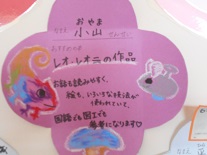 おやま
小山
レオ・レオニの作品
お話も読みやすく、
絵も、いろいろな技法が
使われていて、
国語も図工でも
参考になります♡